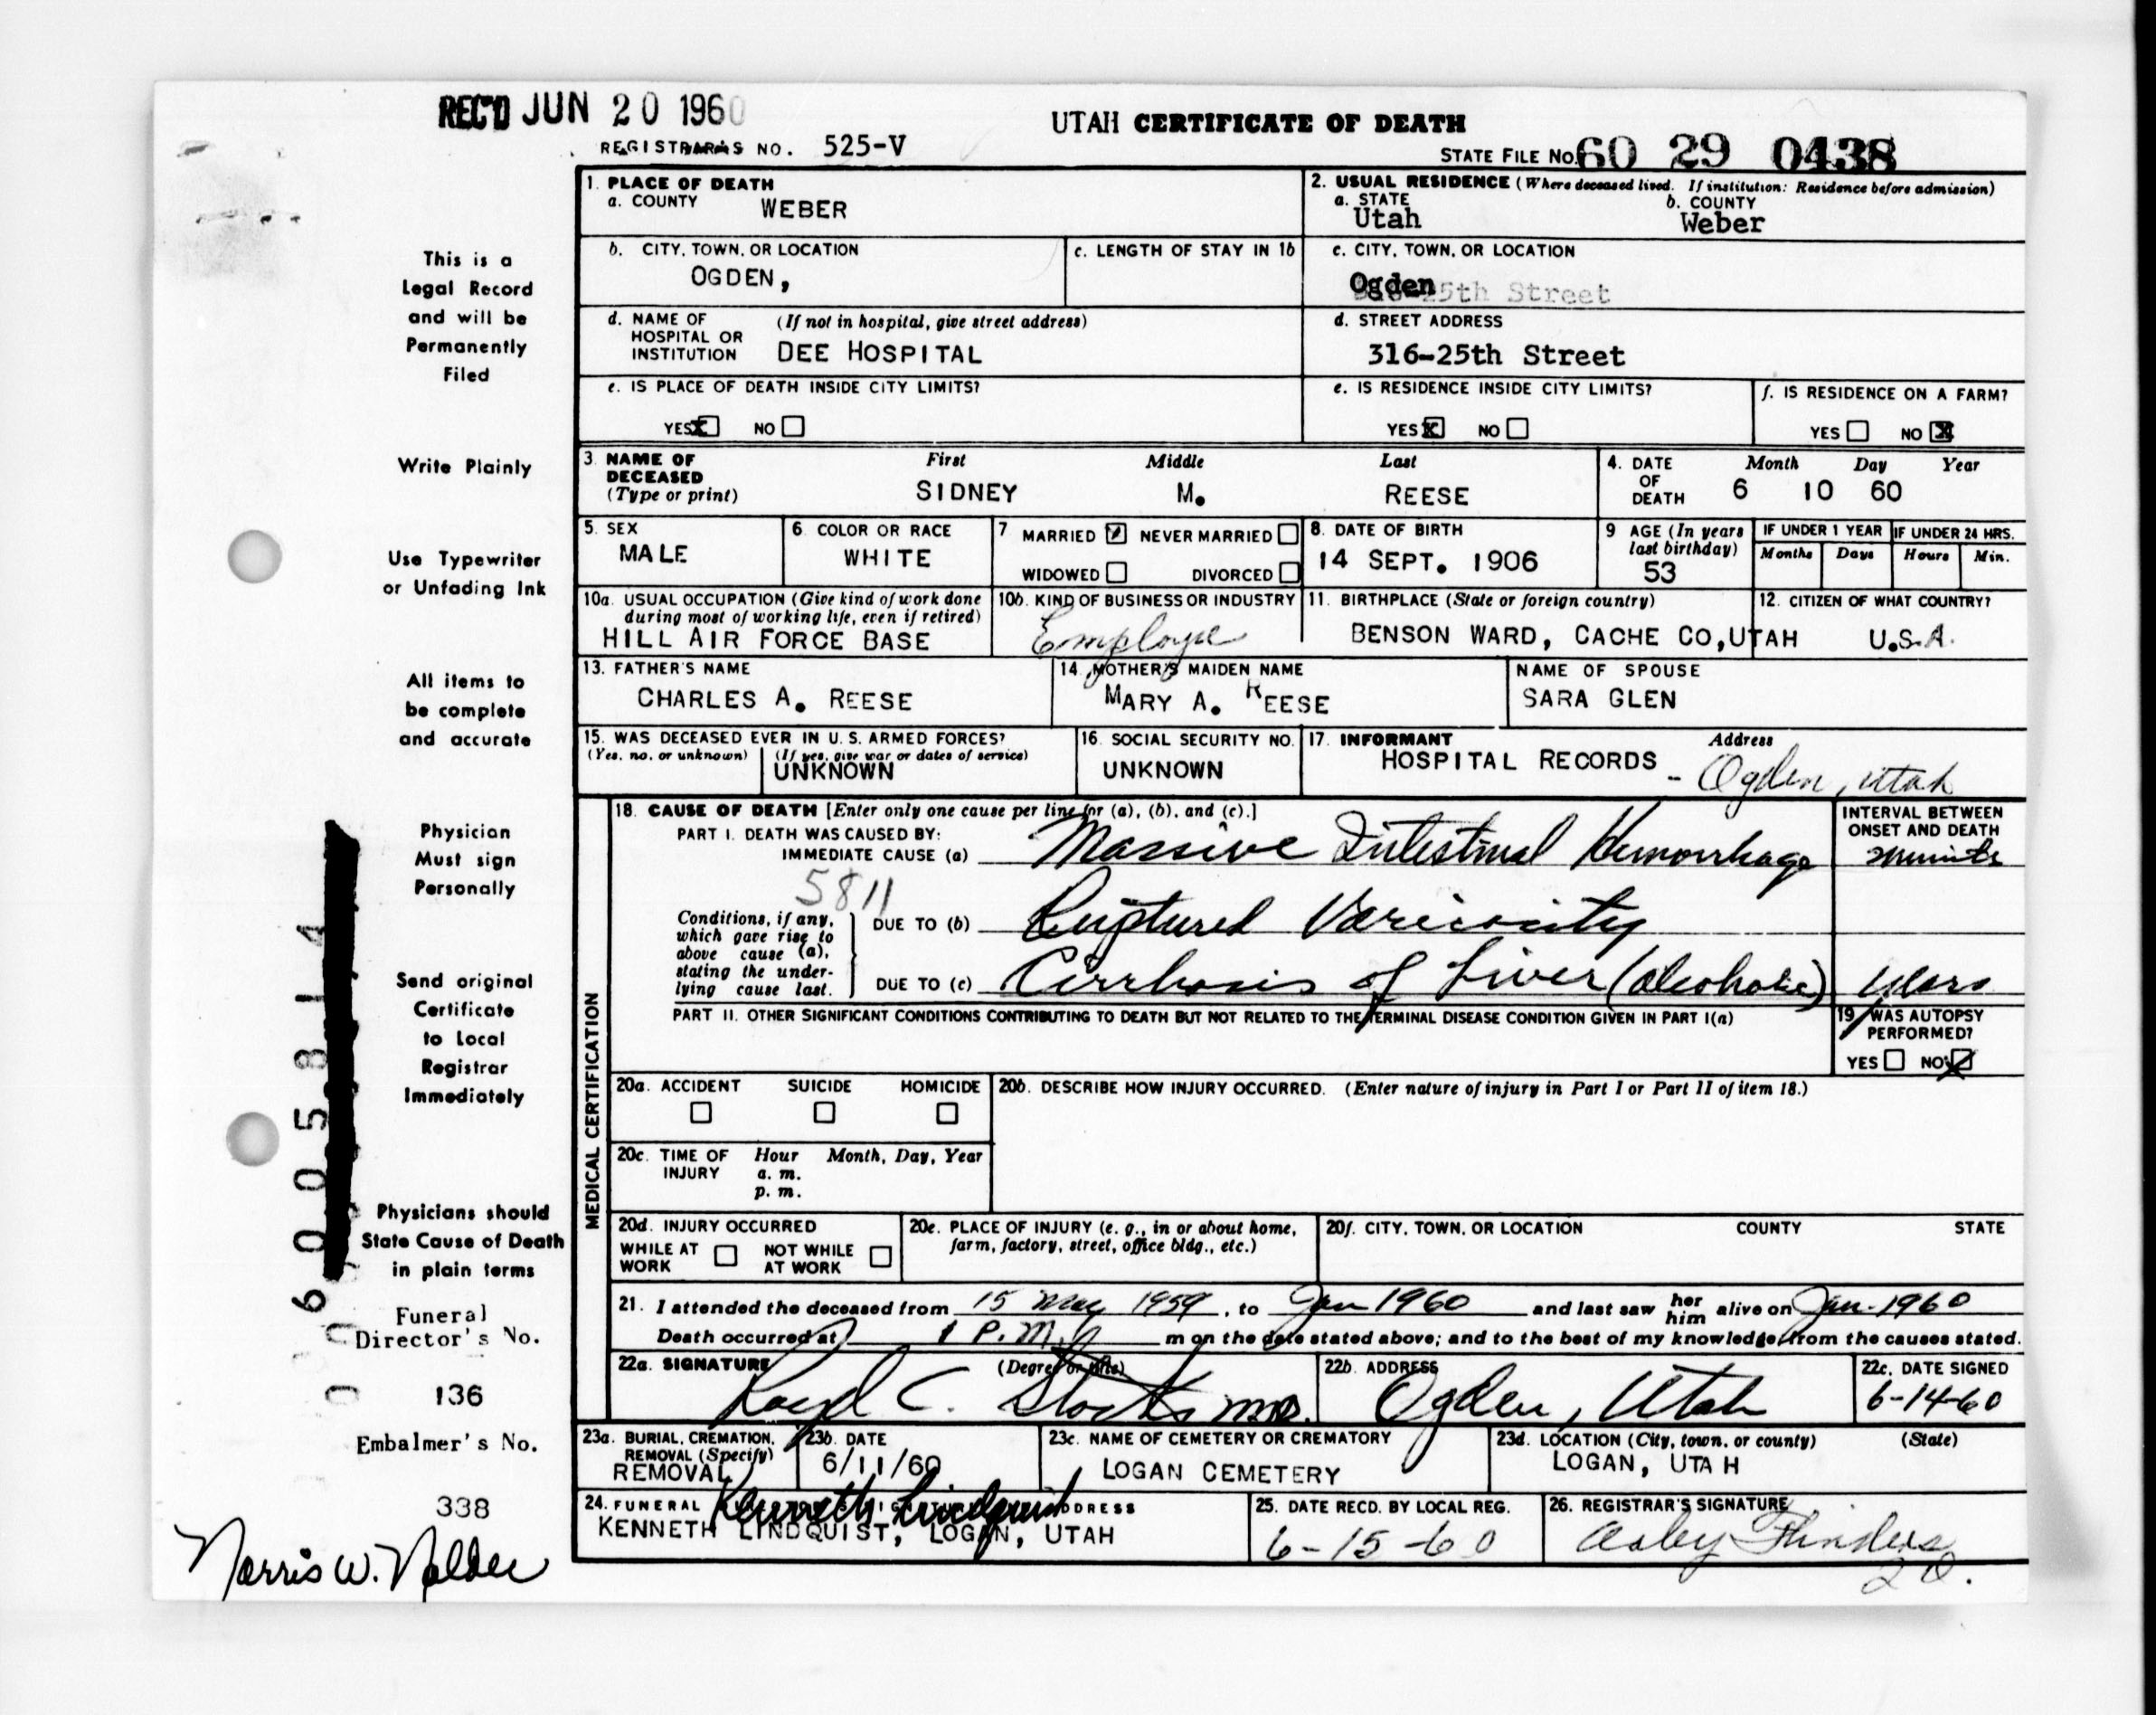 REC'D JUN 20 1960
UTAH CERTIFICATE OF DEATH
REGISTRAR'S NO. 525-V
STATE FILE NO. 60 29 0438
1. PLACE OF DEATH
a. COUNTY WEBER
2. USUAL RESIDENCE (Where deceased lived. If institution: Residence before admission)
a. STATE Utah
b. COUNTY Weber
b. CITY, TOWN, OR LOCATION
OGDEN,
c. LENGTH OF STAY IN 1b
c. CITY, TOWN, OR LOCATION
Ogden
25th Street
d. NAME OF HOSPITAL OR INSTITUTION (If not in hospital, give street address)
DEE HOSPITAL
d. STREET ADDRESS
316-25th Street
e. IS PLACE OF DEATH INSIDE CITY LIMITS?
YES X NO
e. IS RESIDENCE INSIDE CITY LIMITS?
YES X NO
f. IS RESIDENCE ON A FARM?
YES NO X
3. NAME OF DECEASED (Type or print)
First Middle Last
SIDNEY M. REESE
4. DATE OF DEATH
Month Day Year
6 10 60
5. SEX
MALE
6. COLOR OR RACE
WHITE
7 MARRIED NEVER MARRIED
WIDOWED DIVORCED
8. DATE OF BIRTH
14 SEPT. 1906
9 AGE (In years last birthday)
53
IF UNDER 1 YEAR
Months Days
IF UNDER 24 HRS.
Hours Min.
10a. USUAL OCCUPATION (Give kind of work done during most of working life, even if retired)
HILL AIR FORCE BASE
10b. KIND OF BUSINESS OR INDUSTRY
Employe
11. BIRTHPLACE (State or foreign country)
BENSON WARD, CACHE CO,UTAH
12. CITIZEN OF WHAT COUNTRY?
U.S.A.
13. FATHER'S NAME
CHARLES A. REESE
14. MOTHER'S MAIDEN NAME
MARY A. REESE
NAME OF SPOUSE
SARA GLEN
15. WAS DECEASED EVER IN U. S. ARMED FORCES?
(Yes, no, or unknown) (If yes, give war or dates of service)
UNKNOWN
16. SOCIAL SECURITY NO.
UNKNOWN
17. INFORMANT Address
HOSPITAL RECORDS - Ogden, Utah
MEDICAL CERTIFICATION
18. CAUSE OF DEATH [Enter only one cause per line for (a), (b), and (c).]
PART I. DEATH WAS CAUSED BY:
IMMEDIATE CAUSE (a) Massive Intestinal Hemorrhage
INTERVAL BETWEEN ONSET AND DEATH
minutes
5811
Conditions, if any, which gave rise to above cause (a), stating the underlying cause last.
DUE TO (b) Ruptured Varicosity
DUE TO (c) Cirrhosis of Liver (alcoholic) years
PART II. OTHER SIGNIFICANT CONDITIONS CONTRIBUTING TO DEATH BUT NOT RELATED TO THE TERMINAL DISEASE CONDITION GIVEN IN PART I(a)
19. WAS AUTOPSY PERFORMED?
YES NO X
20a. ACCIDENT SUICIDE HOMICIDE
20b. DESCRIBE HOW INJURY OCCURRED. (Enter nature of injury in Part I or Part II of item 18.)
20c. TIME OF INJURY Hour Month, Day, Year
a. m.
p. m.
20d. INJURY OCCURRED
WHILE AT WORK NOT WHILE AT WORK
20e. PLACE OF INJURY (e. g., in or about home, farm, factory, street, office bldg., etc.)
20f. CITY, TOWN, OR LOCATION COUNTY STATE
21. I attended the deceased from 15 May 1959, to Jan 1960 and last saw her him alive on Jan. 1960
Death occurred at 1 P.M. m on the date stated above; and to the best of my knowledge, from the causes stated.
22a. SIGNATURE (Degree or title)
Loyd C. Stocks M.D.
22b. ADDRESS
Ogden, Utah
22c. DATE SIGNED
6-14-60
23a. BURIAL, CREMATION, REMOVAL (Specify)
REMOVAL
23b. DATE
6/11/60
23c. NAME OF CEMETERY OR CREMATORY
LOGAN CEMETERY
23d. LOCATION (City, town, or county) (State)
LOGAN, UTAH
24. FUNERAL ADDRESS
Kenneth Lindquist
KENNETH LINDQUIST, LOGAN, UTAH
25. DATE RECD. BY LOCAL REG.
6-15-60
26. REGISTRAR'S SIGNATURE
Flinders
This is a
Legal Record
and will be
Permanently
Filed
Write Plainly
Use Typewriter
or Unfading Ink
All items to
be complete
and accurate
Physician
Must sign
Personally
Send original
Certificate
to Local
Registrar
Immediately
Physicians should
State Cause of Death
in plain terms
Funeral
Director's No.
136
Embalmer's No.
338
Norris W. Nalder
6005814